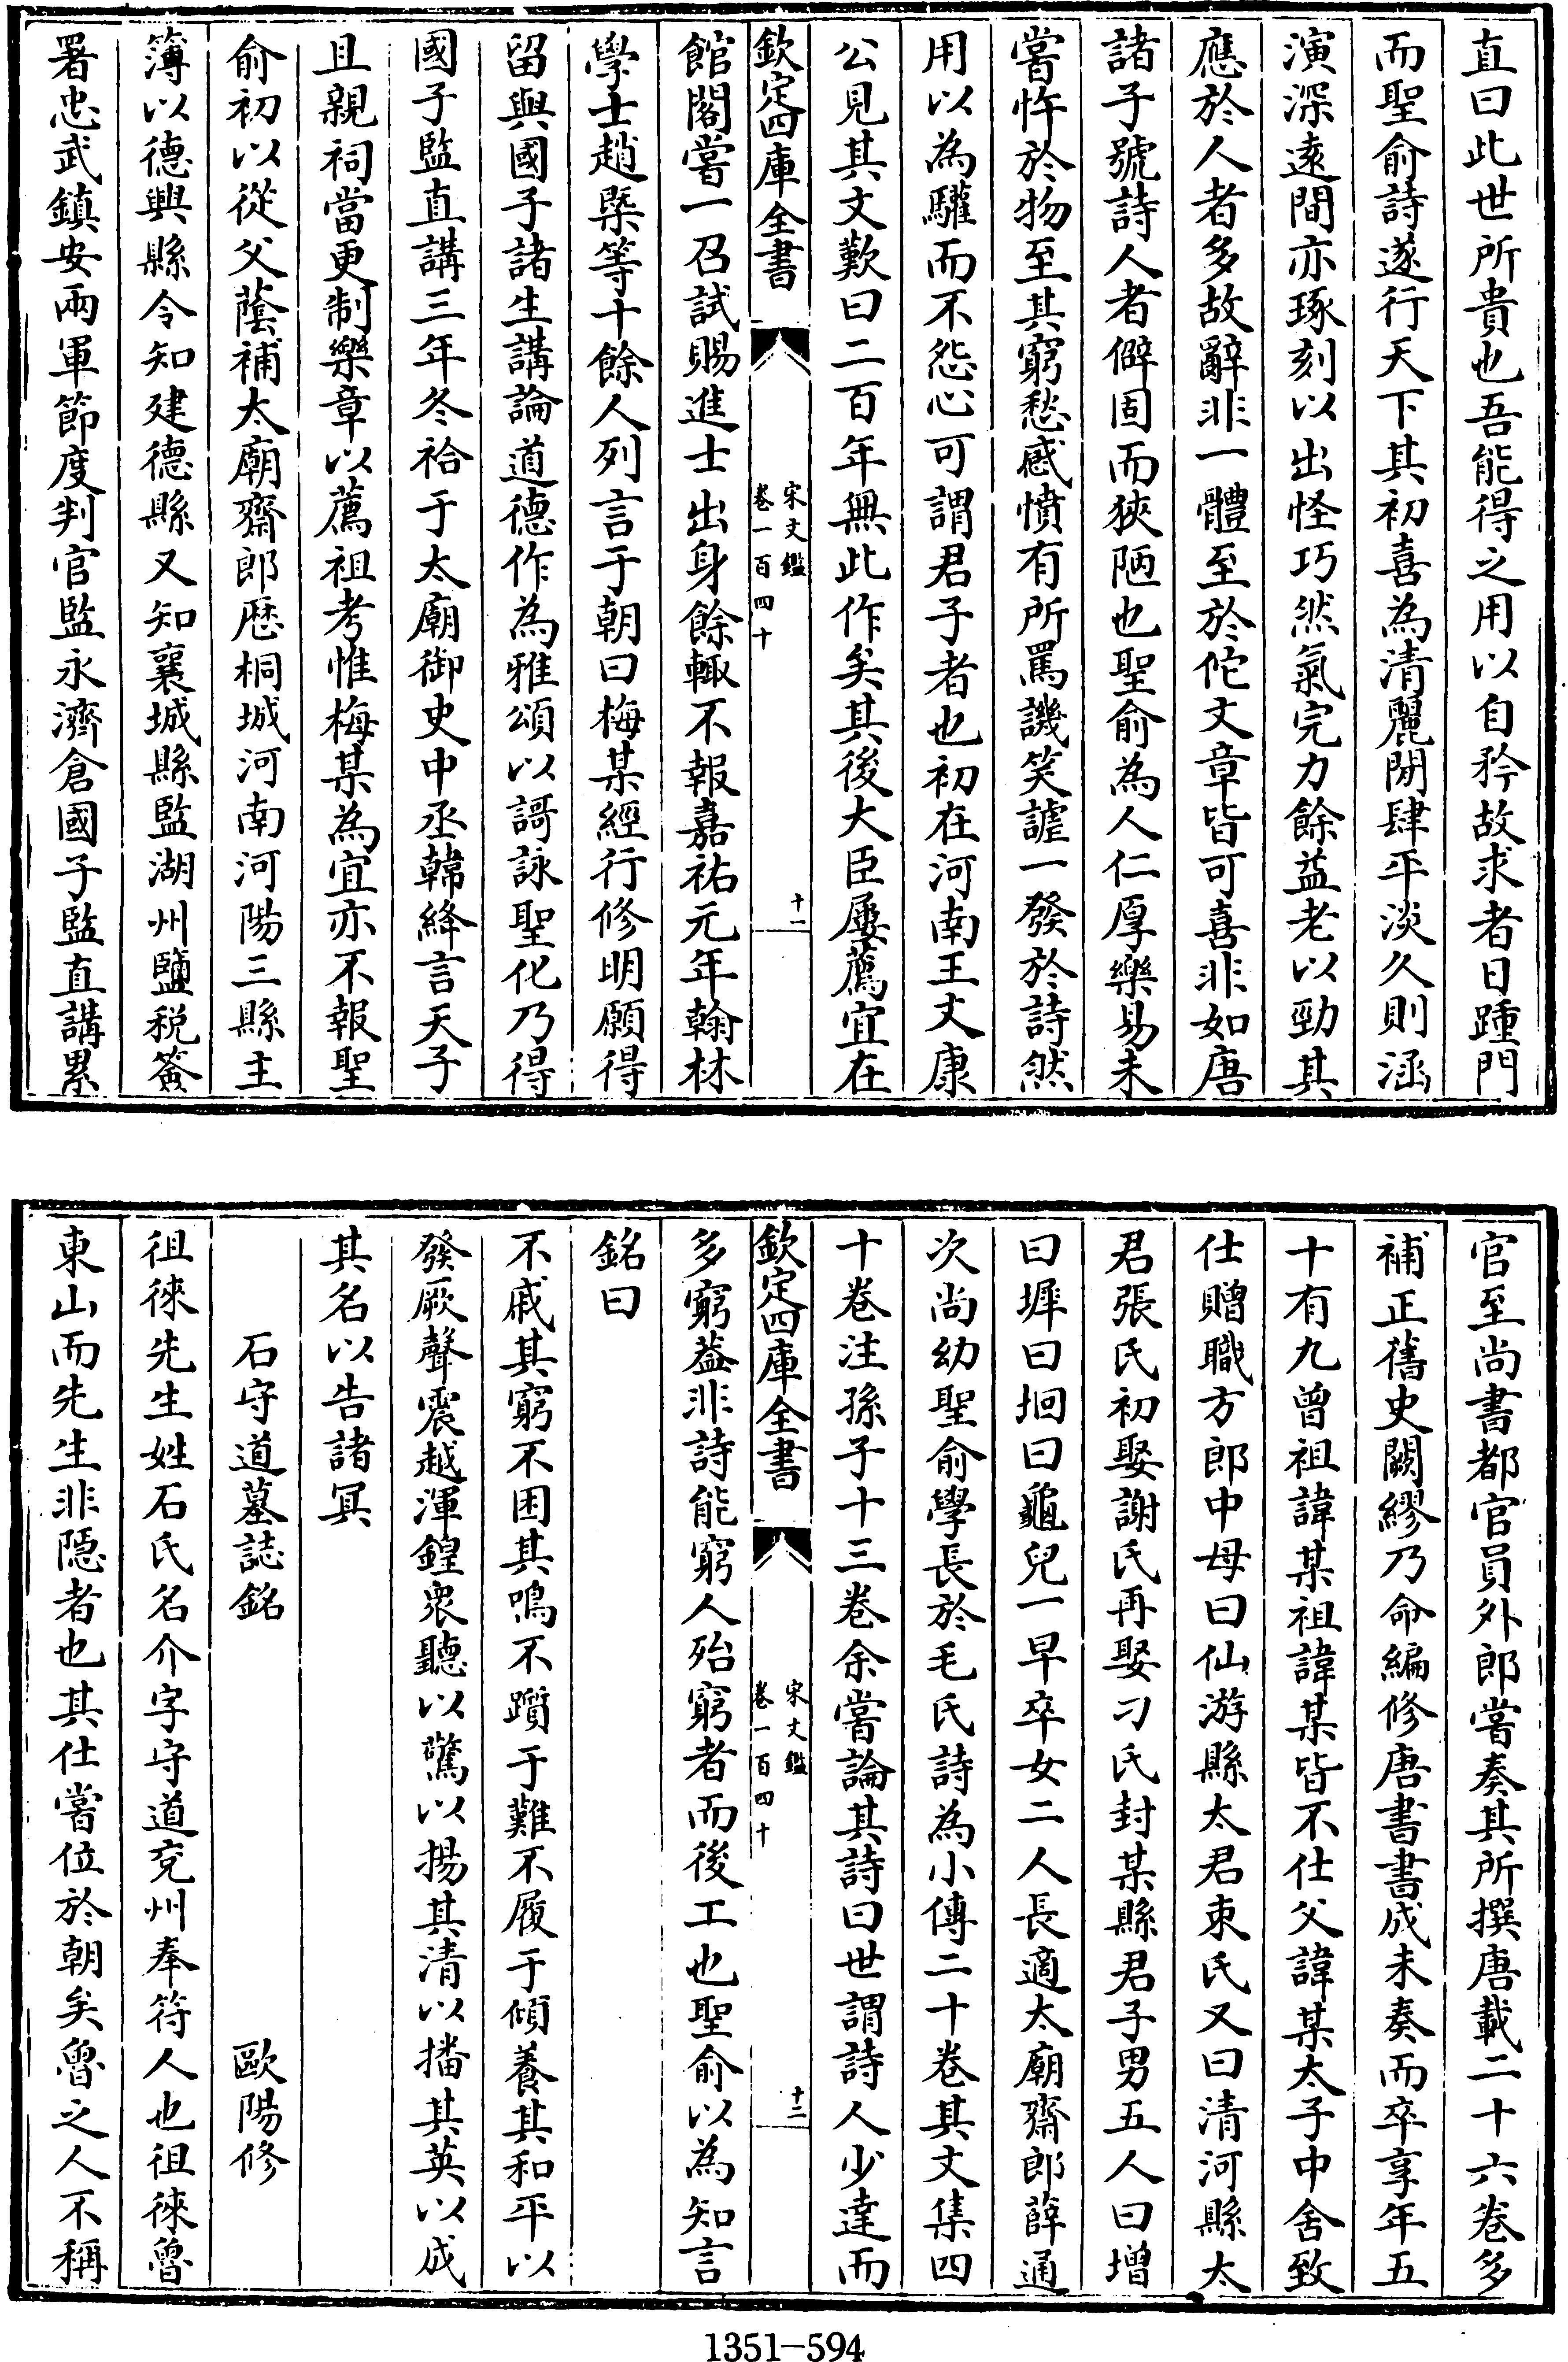 直曰此世所貴也吾能得之用以自矜故求者日踵門
而聖俞詩遂行天下其初喜為清麗閒肆平淡久則涵
演深遠間亦琢刻以出怪巧然氣完力餘益老以勁其
應於人者多故辭非一體至於佗文章皆可喜非如唐
諸子號詩人者僻固而狹陋也聖俞為人仁厚樂易未
嘗忤於物至其窮愁感憤有所罵譏笑謔一發於詩然
用以為驩而不怨心可謂君子者也初在河南王文康
公見其文歎曰二百年無此作矣其後大臣屢薦宜在
欽定四庫全書
宋文鑑
卷一百四十
十一
館閣嘗一召試賜進士出身餘輒不報嘉祐元年翰林
學士趙槩等十餘人列言于朝曰梅某經行修明願得
留與國子諸生講論道德作為雅頌以謌詠聖化乃得
國子監直講三年冬祫于太廟御史中丞韓絳言天子
且親祠當更制樂章以薦祖考惟梅某為宜亦不報聖
俞初以從父蔭補太廟齋郎歷桐城河南河陽三縣主
簿以德興縣令知建德縣又知襄城縣監湖州鹽稅簽
署忠武鎮安兩軍節度判官監永濟倉國子監直講累
官至尚書都官員外郎嘗奏其所撰唐載二十六卷多
補正舊史闕繆乃命編修唐書書成未奏而卒享年五
十有九曾祖諱某祖諱某皆不仕父諱某太子中舍致
仕贈職方郎中母曰仙游縣太君束氏又曰清河縣太
君張氏初娶謝氏再娶刁氏封某縣君子男五人曰增
曰墀曰坰曰龜兒一早卒女二人長適太廟齋郎薛通
次尚幼聖俞學長於毛氏詩為小傳二十卷其文集四
十卷注孫子十三卷余嘗論其詩曰世謂詩人少達而
欽定四庫全書
宋文鑑
卷一百四十
十二
多窮葢非詩能窮人殆窮者而後工也聖俞以為知言
銘曰
不戚其窮不困其鳴不躓于難不履于傾養其和平以
發厥聲震越渾鍠衆聽以驚以揚其清以播其英以成
其名以告諸冥
石守道墓誌銘　歐陽修
徂徠先生姓石氏名介字守道兗州奉符人也徂徠魯
東山而先生非隱者也其仕嘗位於朝矣魯之人不稱
1351-594